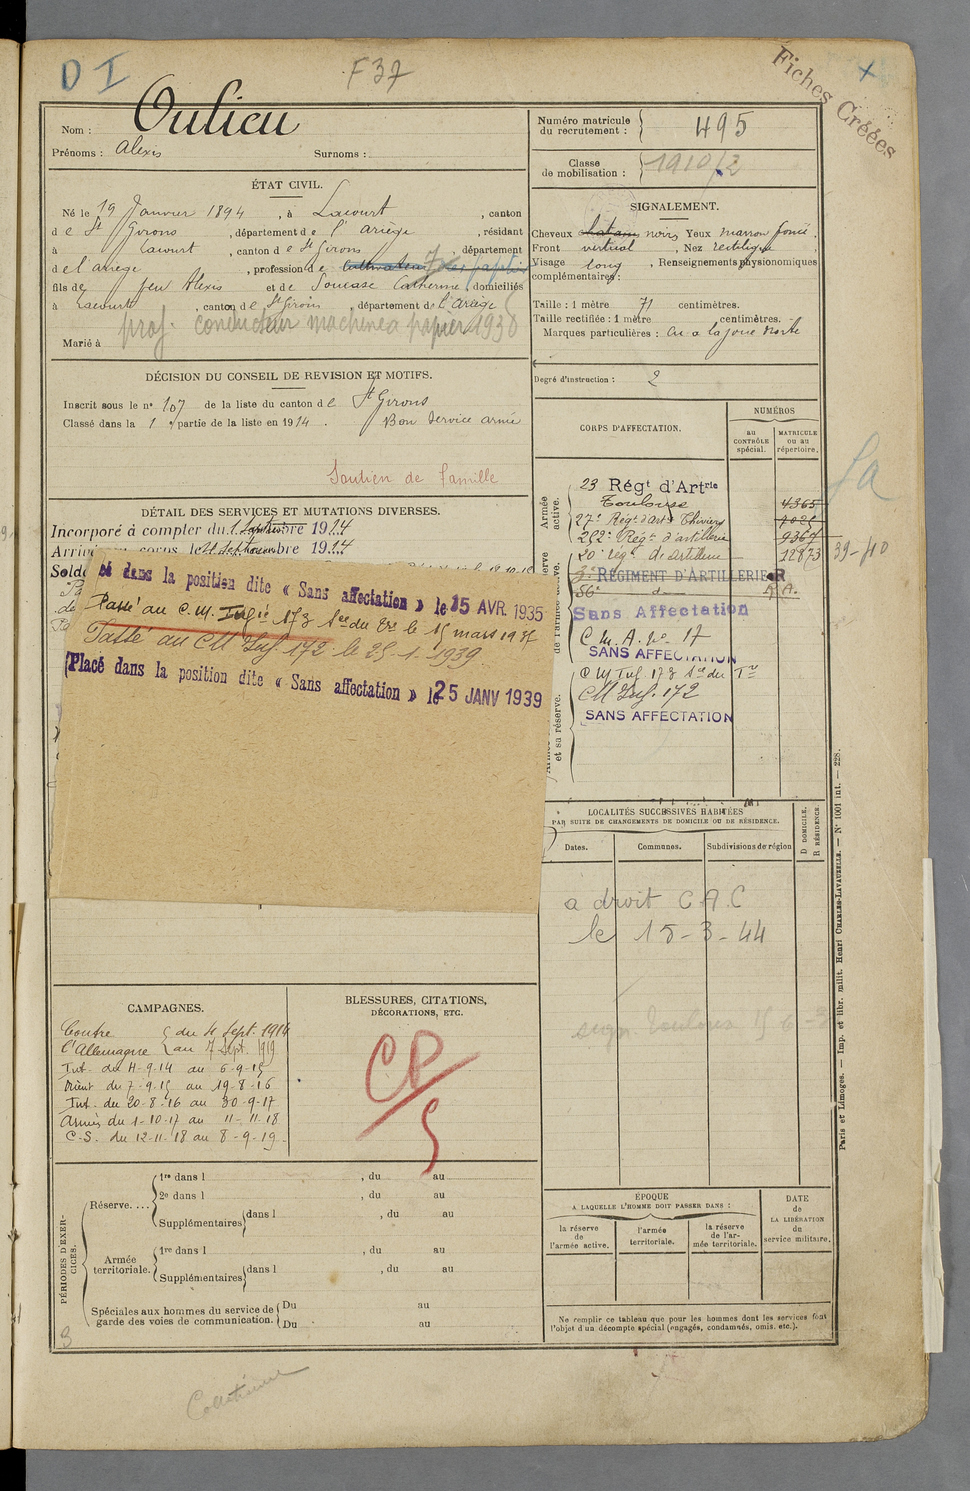 D I
F 37
Fiches Créées
Nom : Oulieu
Prénoms : Alexis Surnoms :
Numéro matricule du recrutement : 495
Classe de mobilisation : 1910/2
ÉTAT CIVIL.
Né le 19 Janvier 1894, à Lacourt, canton
de St Girons, département de l'Ariège, résidant
à Lacourt, canton de St Girons, département
de l'Ariège, profession de cultivateur
fils de feu Alexis et de Soucasse Catherine, domiciliés
à Lacourt, canton de St Girons, département de l'Ariège
prof. conducteur machine a papier 1930
Marié à
SIGNALEMENT.
Cheveux chatain noirs Yeux marron foncé.
Front vertical, Nez rectiligne
Visage long, Renseignements physionomiques
complémentaires :
Taille : 1 mètre 71 centimètres.
Taille rectifiée : 1 mètre centimètres.
Marques particulières : Cu a la joue droite
Degré d'instruction : 2
DÉCISION DU CONSEIL DE REVISION ET MOTIFS.
Inscrit sous le n° 107 de la liste du canton de St Girons
Classé dans la 1 partie de la liste en 1914. Bon service armé
Soutien de famille
DÉTAIL DES SERVICES ET MUTATIONS DIVERSES.
Incorporé à compter du 1 Septembre 1914
Arrivé au corps le 4 septembre 1914
Solda
cé dans la position dite « Sans affectation » le 15 AVR. 1935
Passé au C.M. Infie 173 le 15 mars 1937
Passé au CM Inf. 172 le 25-1-1939
Placé dans la position dite « Sans affectation » le 25 JANV 1939
CORPS D'AFFECTATION.
NUMÉROS
au CONTRÔLE spécial.
MATRICULE ou au répertoire.
Armée active.
23 Régt d'Artrie
Toulouse 4365
27e Régt d'artie 7025
282e Régt d'artillerie 9367
20e régt de artillerie 12873
39-40
3e RÉGIMENT D'ARTILLERIE R
56e do R.A.
Sans Affectation
C.M.A. no 17
SANS AFFECTATION
C M Inf. 173
CM Inf. 172
SANS AFFECTATION
et sa réserve.
LOCALITÉS SUCCESSIVES HABITÉES
PAR SUITE DE CHANGEMENTS DE DOMICILE OU DE RÉSIDENCE.
Dates. Communes. Subdivisions de région
D DOMICILE.
R RÉSIDENCE
a droit C A C
le 15-3-44
CAMPAGNES.
Contre l'Allemagne du 4 Sept. 1914
au 7 Sept. 1919
Int. du 4-9-14 au 6-9-15
Orient du 7-9-15 au 19-8-16
Int. du 20-8-16 au 30-9-17
Armées du 1-10-17 au 11-11-18
C.S. du 12-11-18 au 8-9-19
BLESSURES, CITATIONS,
DÉCORATIONS, ETC.
CP/5
PÉRIODES D'EXERCICES.
Réserve. ...
1re dans l , du au
2e dans l , du au
Supplémentaires dans l , du au
Armée territoriale.
1re dans l , du au
Supplémentaires dans l , du au
Spéciales aux hommes du service de garde des voies de communication.
Du au
Du au
ÉPOQUE
A LAQUELLE L'HOMME DOIT PASSER DANS :
la réserve de l'armée active.
l'armée territoriale.
la réserve de l'armée territoriale.
DATE de LA LIBÉRATION du service militaire.
Ne remplir ce tableau que pour les hommes dont les services font
l'objet d'un décompte spécial (engagés, condamnés, omis, etc.).
Paris et Limoges. — Imp. et libr. milit. Henri CHARLES-LAVAUZELLE. — N° 1001 int. — 228.
3
Collationné